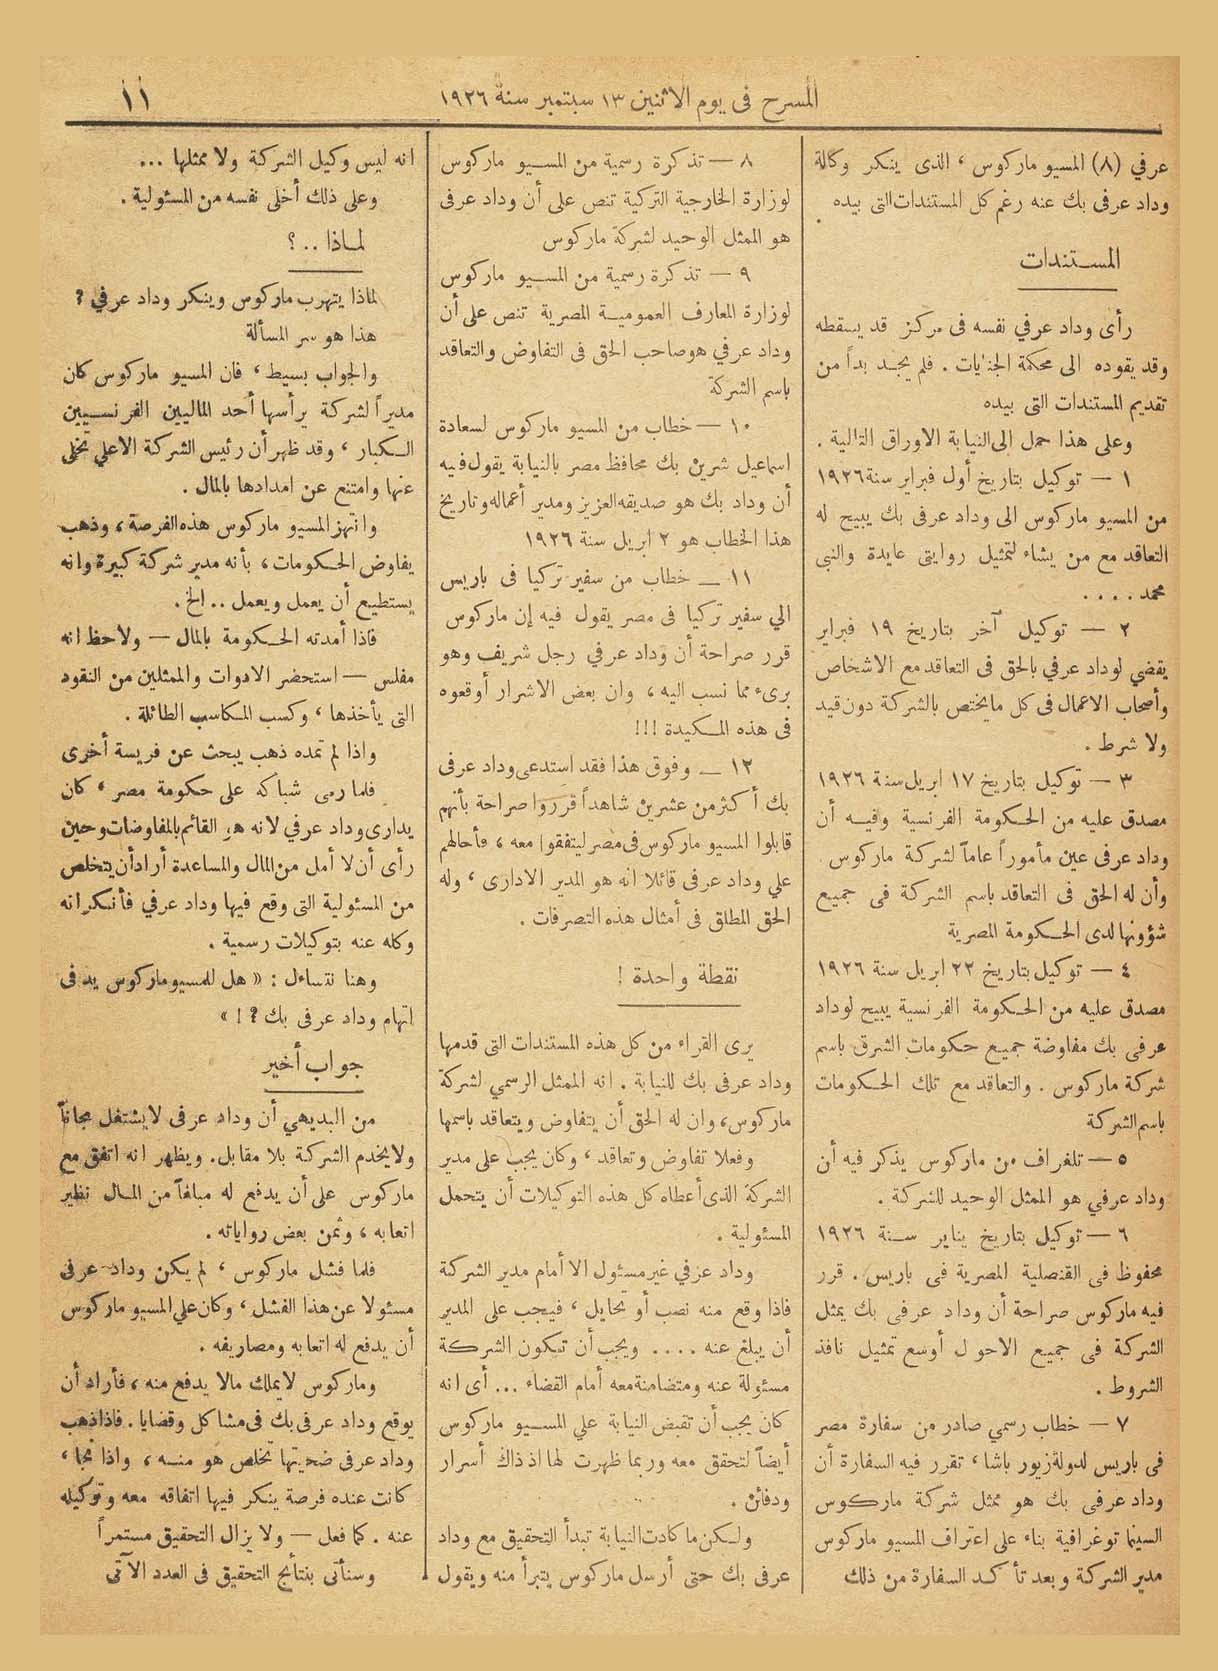 المسرح فى يوم الاثنين ١٣ سبتمبر سنة ١٩٢٦
١١
عرفي (٨) المسيو ماركوس ، الذى ينكر وكالة
وداد عرفى بك عنه رغم كل المستندات التى بيده .
المستندات
رأى وداد عرفي نفسه فى مركز قد يسقطه
وقد يقوده الى محكمة الجنايات . فلم يجد بداً من
تقديم المستندات التى بيده
وعلى هذا حمل الى النيابة الاوراق التالية .
١ — توكيل بتاريخ أول فبراير سنة ١٩٢٦
من المسيو ماركوس الى وداد عرفى بك يبيح له
التعاقد مع من يشاء لتمثيل روايتى عايدة والنبى
محمد . . . .
٢ — توكيل آخر بتاريخ ١٩ فبراير
يقضي لوداد عرفي بالحق فى التعاقد مع الاشخاص
وأصحاب الاعمال فى كل ما يختص بالشركة دون قيد
ولا شرط .
٣ — توكيل بتاريخ ١٧ ابريل سنة ١٩٢٦
مصدق عليه من الحكومة الفرنسية وفيه أن
وداد عرفى عين مأموراً عاماً لشركة ماركوس
وأن له الحق فى التعاقد باسم الشركة فى جميع
شؤونها لدى الحكومة المصرية
٤ — توكيل بتاريخ ٢٢ ابريل سنة ١٩٢٦
مصدق عليه من الحكومة الفرنسية يبيح لوداد
عرفى بك مفاوضة جميع حكومات الشرق باسم
شركة ماركوس . والتعاقد مع تلك الحكومات
باسم الشركة
٥ — تلغراف من ماركوس يذكر فيه أن
وداد عرفي هو الممثل الوحيد للشركة .
٦ — توكيل بتاريخ يناير سنة ١٩٢٦
محفوظ فى القنصلية المصرية فى باريس . قرر
فيه ماركوس صراحة أن وداد عرفى بك يمثل
الشركة فى جميع الاحول أوسع تمثيل نافذ
الشروط .
٧ — خطاب رسمي صادر من سفارة مصر
فى باريس لدولة زيور باشا ، تقرر فيه السفارة أن
وداد عرفى بك هو ممثل شركة ماركوس
السينما توغرافية بناء على اعتراف المسيو ماركوس
مدير الشركة وبعد تأكد السفارة من ذلك
٨ — تذكرة رسمية من المسيو ماركوس
لوزارة الخارجية التركية تنص على أن وداد عرفى
هو الممثل الوحيد لشركة ماركوس
٩ — تذكرة رسمية من المسيو ماركوس
لوزارة المعارف العمومية المصرية تنص على أن
وداد عرفي هو صاحب الحق فى التفاوض والتعاقد
باسم الشركة
١٠ — خطاب من المسيو ماركوس لسعادة
اسماعيل شرين بك محافظ مصر بالنيابة يقول فيه
أن وداد بك هو صديقه العزيز ومدير أعماله وتاريخ
هذا الخطاب هو ٢ ابريل سنة ١٩٢٦
١١ — خطاب من سفير تركيا فى باريس
الي سفير تركيا فى مصر يقول فيه إن ماركوس
قرر صراحة أن وداد عرفي رجل شريف وهو
برىء مما نسب اليه ، وان بعض الاشرار أوقعوه
فى هذه المكيدة !!!
١٢ — وفوق هذا فقد استدعى وداد عرفى
بك أكثر من عشرين شاهداً قرروا صراحة بأنهم
قابلوا المسيو ماركوس فى مصر ليتفقوا معه ، فأحالهم
علي وداد عرفى قائلا انه هو المدير الادارى ، وله
الحق المطلق فى أمثال هذه التصرفات .
نقطة واحدة !
يرى القراء من كل هذه المستندات التى قدمها
وداد عرفى بك للنيابة . انه الممثل الرسمي لشركة
ماركوس ، وان له الحق أن يتفاوض ويتعاقد باسمها
وفعلا تفاوض وتعاقد ، وكان يجب على مدير
الشركة الذى أعطاه كل هذه التوكيلات أن يتحمل
المسئولية .
وداد عرفي غير مسئول الا أمام مدير الشركة
فاذا وقع منه نصب أو تحايل ، فيجب على المدير
أن يبلغ عنه . . . . ويجب أن تكون الشركة
مسئولة عنه ومتضامنة معه أمام القضاء ... أى انه
كان يجب أن تقبض النيابة علي المسيو ماركوس
أيضاً لتحقق معه وربما ظهرت لها اذ ذاك أسرار
ودفائن .
ولكن ما كادت النيابة تبدأ التحقيق مع وداد
عرفى بك حتى أرسل ماركوس يتبرأ منه ويقول
انه ليس وكيل الشركة ولا ممثلها ...
وعلى ذلك أخلى نفسه من المسئولية .
لماذا .. ؟
لماذا يتهرب ماركوس وينكر وداد عرفي ؟
هذا هو سر المسألة
والجواب بسيط ، فان المسيو ماركوس كان
مديراً لشركة يرأسها أحد الماليين الفرنسيين
الكبار ، وقد ظهر أن رئيس الشركة الاعلي تخلى
عنها وامتنع عن امدادها بالمال .
وانتهز المسيو ماركوس هذه الفرصة ، وذهب
يفاوض الحكومات ، بأنه مدير شركة كبيرة وانه
يستطيع أن يعمل ويعمل .. الخ .
فاذا أمدته الحكومة بالمال — ولاحظ انه
مفلس — استحضر الادوات والممثلين من النقود
التى يأخذها ، وكسب المكاسب الطائلة .
واذا لم تمده ذهب يبحث عن فريسة أخرى
فلما رمى شباكه على حكومة مصر ، كان
يدارى وداد عرفي لانه هو القائم بالمفاوضات وحين
رأى أن لا أمل من المال والمساعدة أراد أن يتخلص
من المسئولية التى وقع فيها وداد عرفي فأنكر انه
وكله عنه بتوكيلات رسمية .
وهنا نتساءل : « هل للمسيو ماركوس يد فى
اتهام وداد عرفى بك ؟ ! »
جواب أخير
من البديهي أن وداد عرفى لا يشتغل مجاناً
ولا يخدم الشركة بلا مقابل . ويظهر انه اتفق مع
ماركوس على أن يدفع له مبلغاً من المال نظير
اتعابه ، وثمن بعض رواياته .
فلما فشل ماركوس ، لم يكن وداد عرفى
مسئولا عن هذا الفشل ، وكان علي المسيو ماركوس
أن يدفع له اتعابه ومصاريفه .
وماركوس لا يملك مالا يدفع منه ، فأراد أن
يوقع وداد عرفى بك فى مشاكل وقضايا . فاذا ذهب
وداد عرفى ضحيتها تخلص هو منه ، واذا نجا ،
كانت عنده فرصة ينكر فيها اتفاقه معه وتوكيله
عنه . كما فعل — ولا يزال التحقيق مستمراً
وسنأتى بنتائج التحقيق فى العدد الآتى